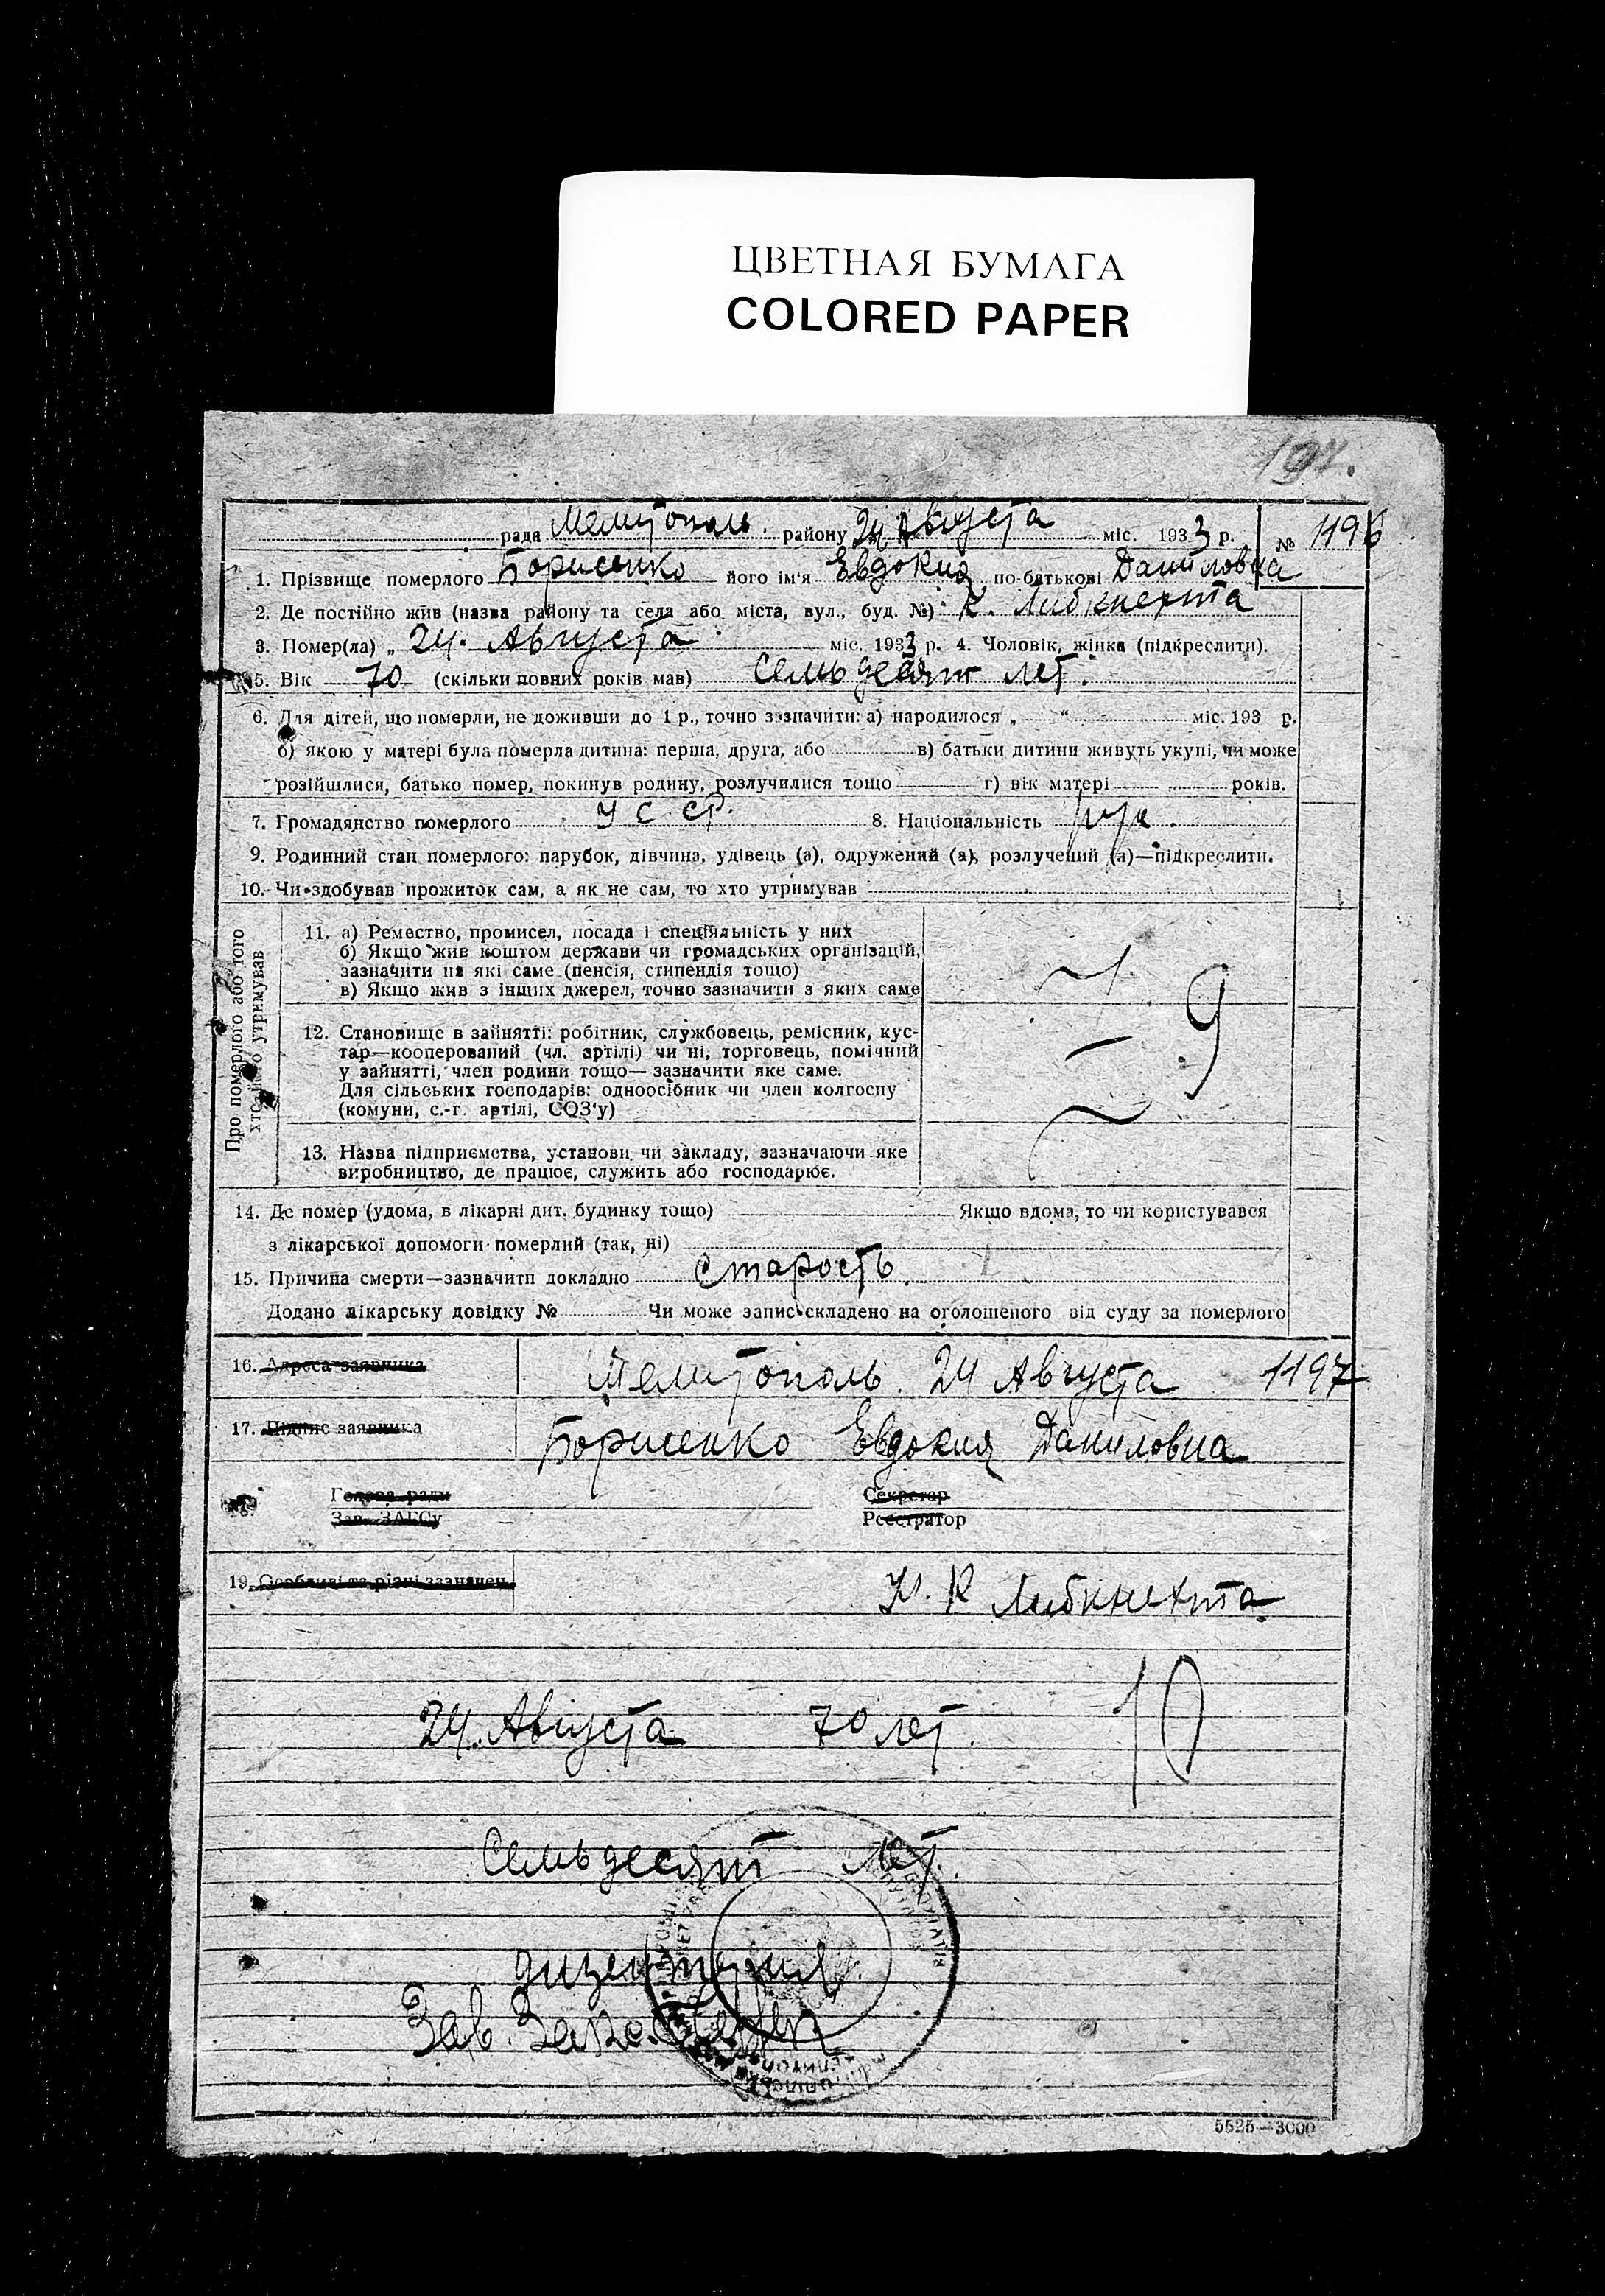 ЦВЕТНАЯ БУМАГА
COLORED PAPER
197.
рада Мелитополь району 24 Августа міс. 1933 р. № 1196
1. Прізвище померлого Борисенко його ім'я Евдокия по-батькові Даниловна
2. Де постійно жив (назва району та села або міста, вул., буд. №) К. Либкнехта
3. Помер(ла) „ 24. Августа міс. 1933 р. 4. Чоловік, жінка (підкреслити).
5. Вік 70 (скільки повних років мав) Семьдесят лет.
6. Для дітей, що померли, не доживши до 1 р., точно зазначити: а) народилося „ “ міс. 193 р.
б) якою у матері була померла дитина: перша, друга, або в) батьки дитини живуть укупі, чи може
розійшлися, батько помер, покинув родину, розлучилися тощо г) вік матері років.
7. Громадянство померлого У С С Р. 8. Національність рус.
9. Родинний стан померлого: парубок, дівчина, удівець (а), одружений (а), розлучений (а)—підкреслити.
10. Чи здобував прожиток сам, а як не сам, то хто утримував
Про померлого або того
хто його утримував
11. а) Ремество, промисел, посада і спеціяльність у них
б) Якщо жив коштом держави чи громадських організацій,
зазначити на які саме (пенсія, стипендія тощо)
в) Якщо жив з інших джерел, точно зазначити з яких саме
9
12. Становище в зайнятті: робітник, службовець, ремісник, кус-
тар—кооперований (чл. артілі) чи ні, торговець, помічний
у зайнятті, член родини тощо— зазначити яке саме.
Для сільських господарів: одноосібник чи член колгоспу
(комуни, с.-г. артілі, СОЗ'у)
13. Назва підприємства, установи чи закладу, зазначаючи яке
виробництво, де працює, служить або господарює.
14. Де помер (удома, в лікарні дит. будинку тощо) Якщо вдома, то чи користувався
з лікарської допомоги померлий (так, ні)
15. Причина смерти—зазначити докладно Старость.
Додано лікарську довідку № Чи може запис складено на оголошеного від суду за померлого
16. Адреса заявника Мелитополь. 24 Августа 1197
17. Підпис заявника Борисенко Евдокия Даниловна
18. Голова ради Секретар
Зав. ЗАГСу Реєстратор
19. Особливі та різні зазначен.
К. Либкнехта
24. Августа 70 лет. 10
Семьдесят лет.
дизентерия
Зав. Загс.
5525—3000